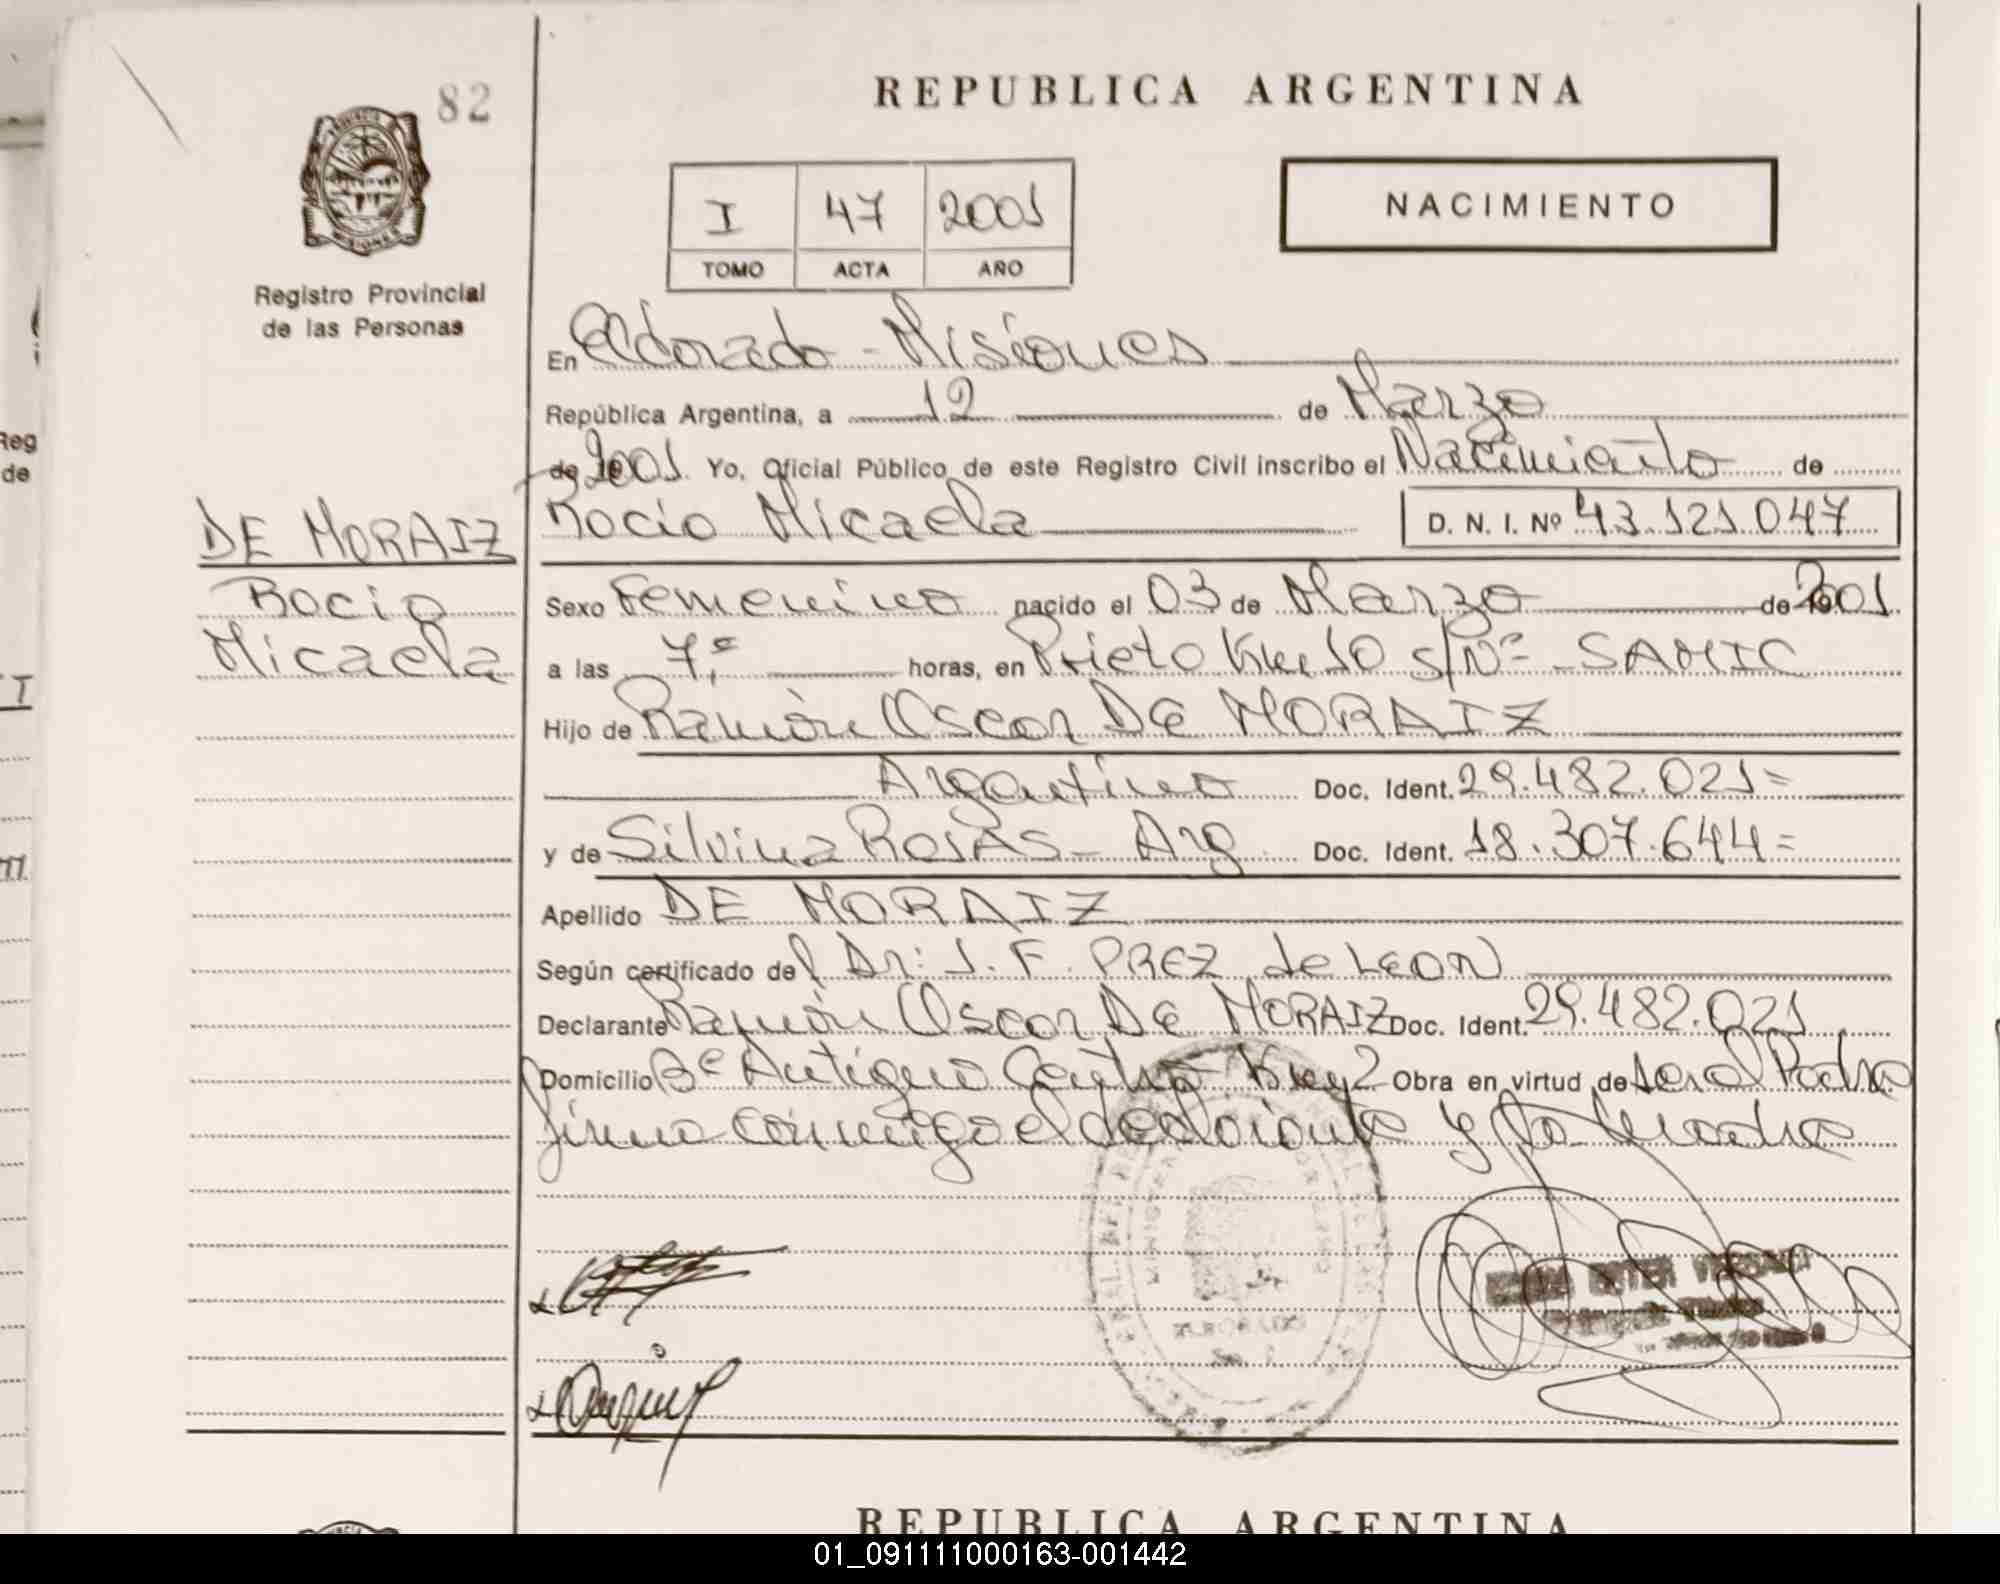 82
REPUBLICA ARGENTINA
NACIMIENTO
I 47 2001
TOMO ACTA AÑO
Registro Provincial
de las Personas
En Eldorado - Misiones
República Argentina, a 12 de Marzo
de 2001. Yo, Oficial Público de este Registro Civil inscribo el Nacimiento de
Rocio Micaela D. N. I. Nº 43.121.047
DE MORAIZ
Rocio
Micaela
Sexo Femenino nacido el 03 de Marzo de 2001
a las 7,º horas, en Prieto Km 10 s/Nº - SAMIC
Hijo de Ramón Oscar De MORAIZ
Argentino Doc. Ident. 29.482.021=
y de Silvina ROJAS - Arg Doc. Ident. 18.307.644=
Apellido DE MORAIZ
Según certificado del Dr: J. F. PREZ de LEON
Declarante Ramón Oscar De MORAIZ Doc. Ident. 29.482.021
Domicilio Bº Antiguo Centro Km 2 Obra en virtud de ser el Padre
firma conmigo el declarante y la madre
ELDORADO
REPUBLICA ARGENTINA
Reg
de
01_091111000163-001442